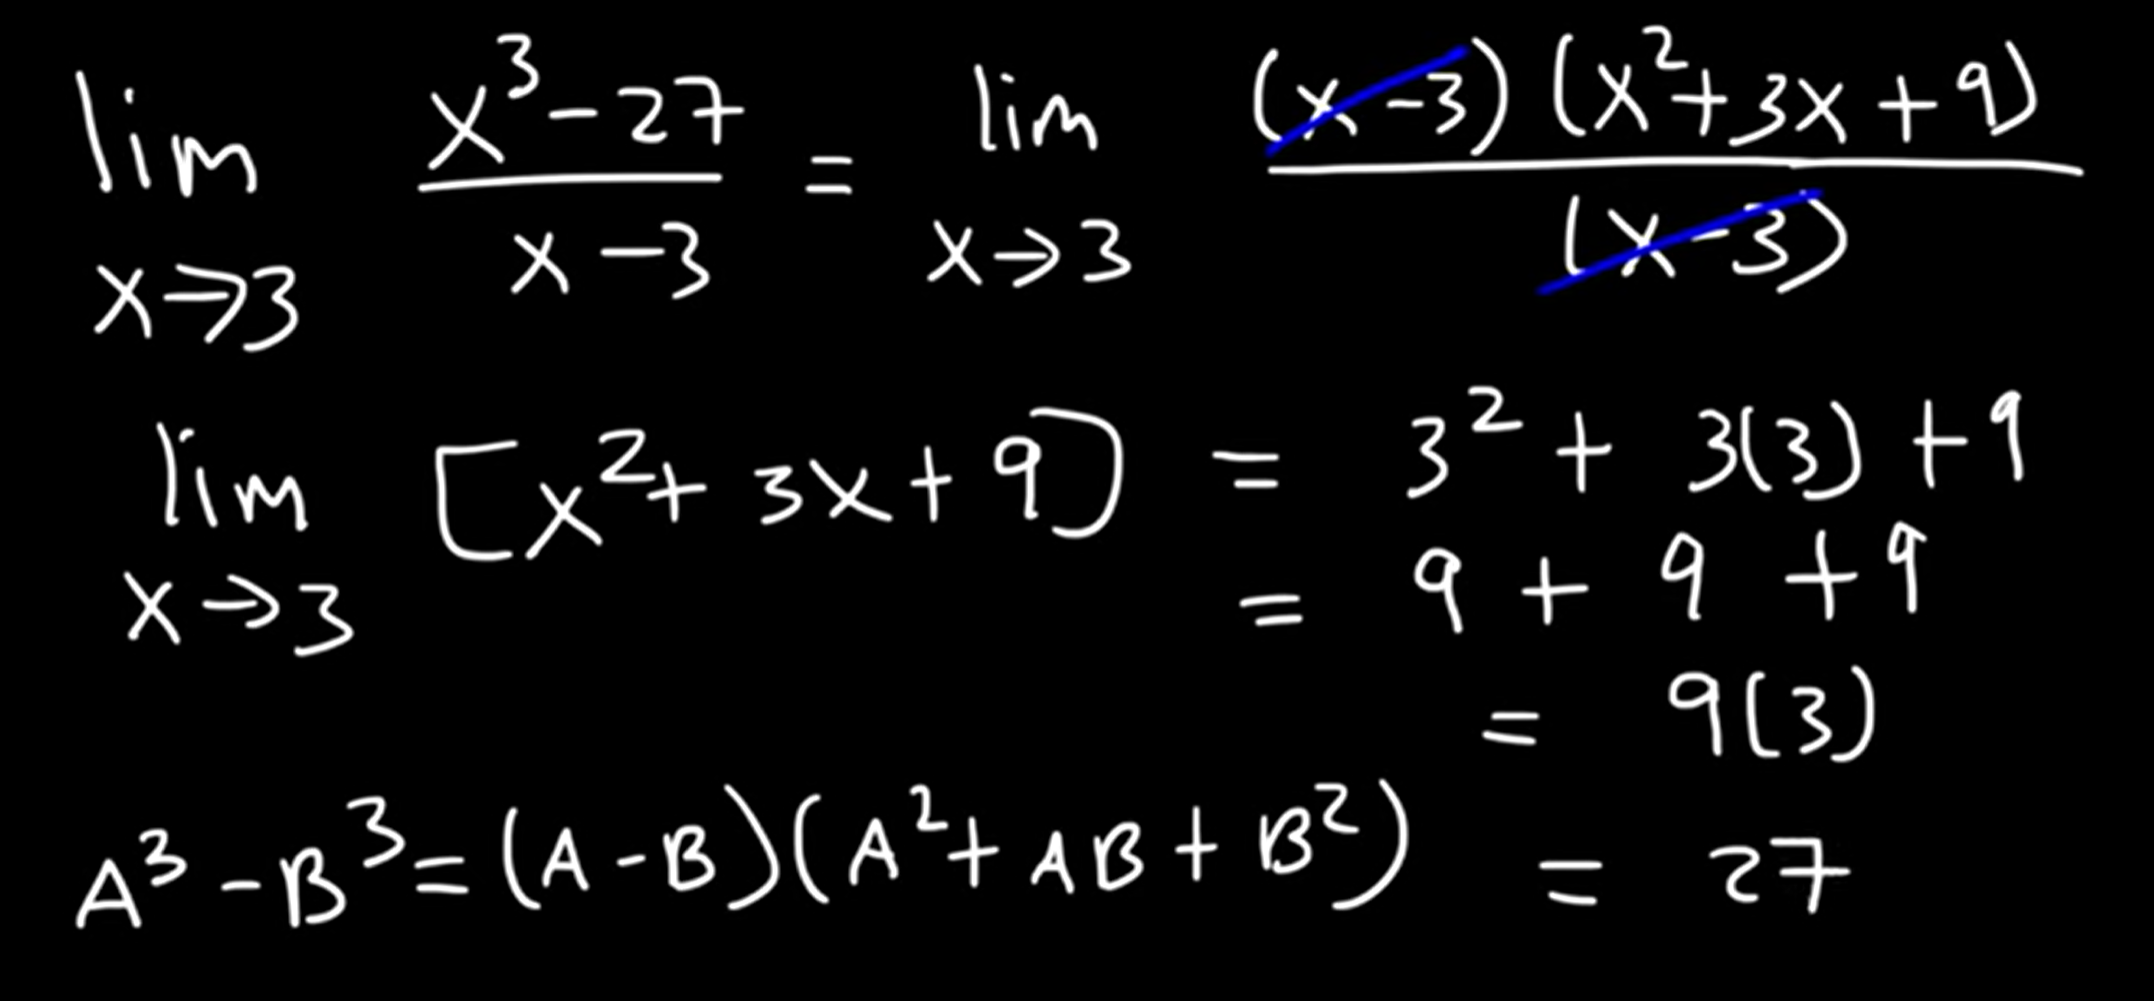 lim x→3 (x³ - 27)/(x - 3) = lim x→3 ((x - 3)(x² + 3x + 9))/(x - 3)
lim x→3 [x² + 3x + 9] = 3² + 3(3) + 9
= 9 + 9 + 9
= 9(3)
A³ - B³ = (A - B)(A² + AB + B²)
= 27